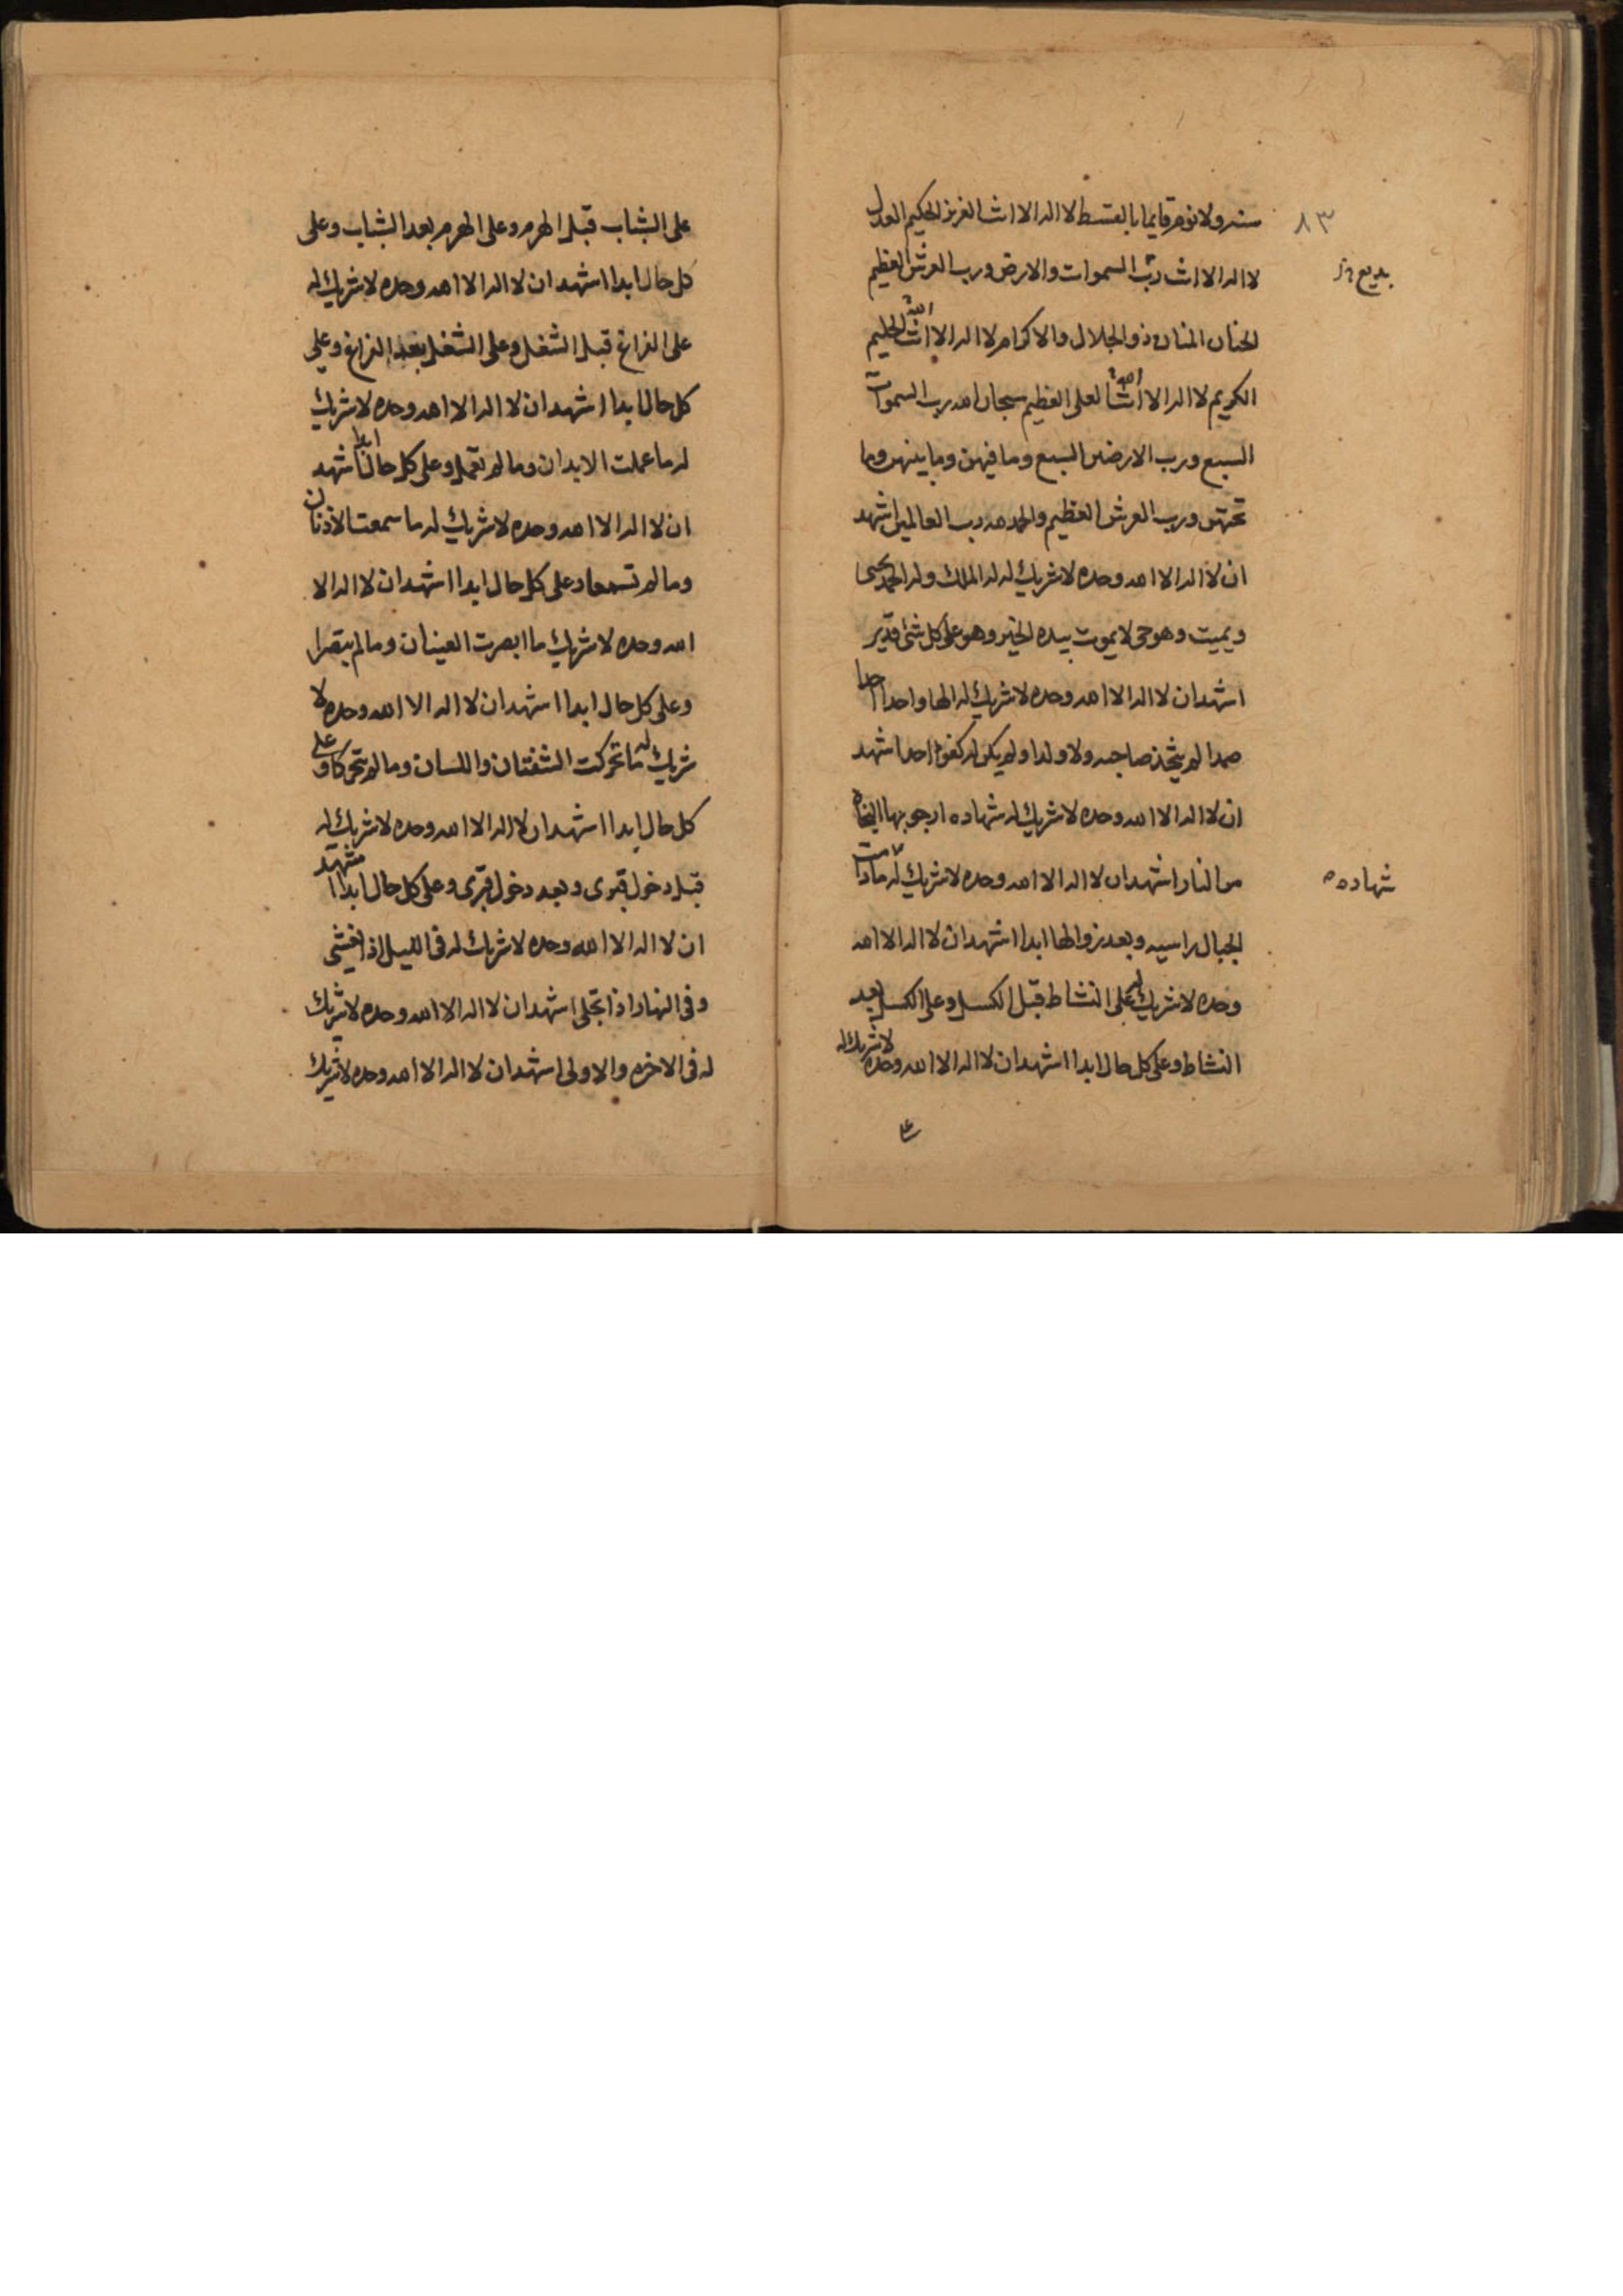 ٨٣
سنه ولا نوم قايما بالقسط لا اله الا انت العزيز الحكيم العدل
لا اله الا انت رب السموات والارض ورب العرش العظيم
بديع
الحنان المنان ذو الجلال والاكرام لا اله الا انت الله الحليم
الكريم لا اله الا انت الله العلى العظيم سبحان الله رب السموات
السبع ورب الارضين السبع وما فيهن وما بينهن وما
تحتهن ورب العرش العظيم والحمد لله رب العالمين اشهد
ان لا اله الا الله وحده لا شريك له له الملك وله الحمد يحيى
ويميت وهو حى لا يموت بيده الخير وهو على كل شئ قدير
اشهد ان لا اله الا الله وحده لا شريك له الها واحدا احدا
صمدا لم يتخذ صاحبه ولا ولدا ولم يكن له كفوا احد اشهد
ان لا اله الا الله وحده لا شريك له شهاده ارجو بها النجاه
من النار اشهد ان لا اله الا الله وحده لا شريك له ما دامت
شهاده
الجبال راسيه وبعد زوالها ابدا اشهد ان لا اله الا الله
وحده لا شريك له على النشاط قبل الكسل وعلى الكسل بعد
النشاط وعلى كل حال ابدا اشهد ان لا اله الا الله وحده لا شريك له
على الشباب قبل الهرم وعلى الهرم بعد الشباب وعلى
كل حال ابدا اشهد ان لا اله الا الله وحده لا شريك له
على الفراغ قبل الشغل وعلى الشغل بعد الفراغ وعلى
كل حال ابدا اشهد ان لا اله الا الله وحده لا شريك
له ما عملت الابدان وما لم تعمل وعلى كل حال ابدا اشهد
ان لا اله الا الله وحده لا شريك له ما سمعت الاذنان
وما لم تسمعا وعلى كل حال ابدا اشهد ان لا اله الا
الله وحده لا شريك ما ابصرت العينان وما لم يبصرا
وعلى كل حال ابدا اشهد ان لا اله الا الله وحده لا
شريك له ما تحركت الشفتان واللسان وما لم يتحركا وعلى
كل حال ابدا اشهد ان لا اله الا الله وحده لا شريك له
قبل دخول قبرى وبعد دخول قبرى وعلى كل حال ابدا اشهد
ان لا اله الا الله وحده لا شريك له فى الليل اذا يغشى
وفى النهار اذا تجلى اشهد ان لا اله الا الله وحده لا شريك
له فى الاخره والاولى اشهد ان لا اله الا الله وحده لا شريك